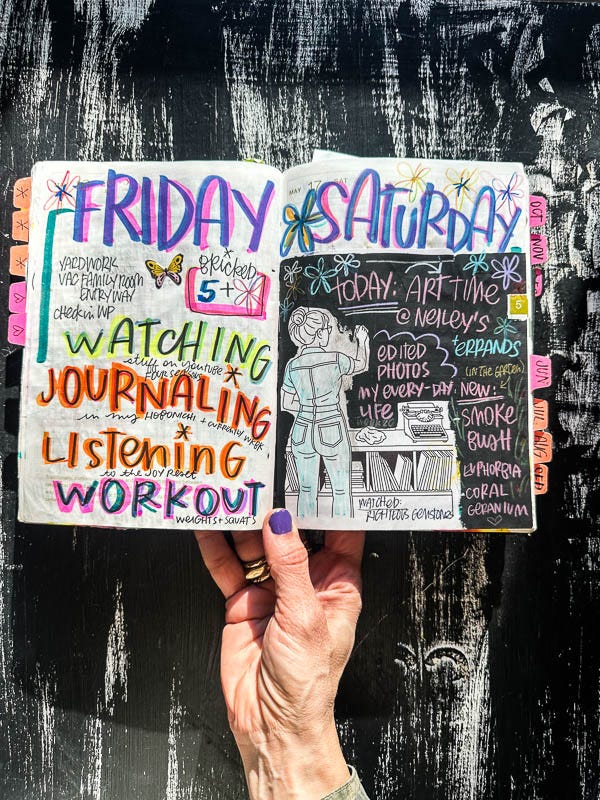 FRIDAY
YARDWORK
VAC FAMILY ROOM
ENTRYWAY
check in WP
5+
WATCHING
stuff on youtube
FOUR SEASONS
JOURNALING
in my HOBONICHI + currently WEEK
Listening
to the JOY Reset
WORKOUT
WEIGHTS + SQUATS
MAY 17 SAT
SATURDAY
TODAY: ART TIME
@ NEILEY'S
EDITED
PHOTOS
MY EVERY-DAY
LIFE
ERRANDS
(IN THE GARDEN)
NEW:
SMOKE
BUSH
EUPHORBIA
CORAL
GERANIUM
WATCHED:
RIGHTEOUS GEMSTONES
5
OCT
NOV
JUN
AUG
SEP